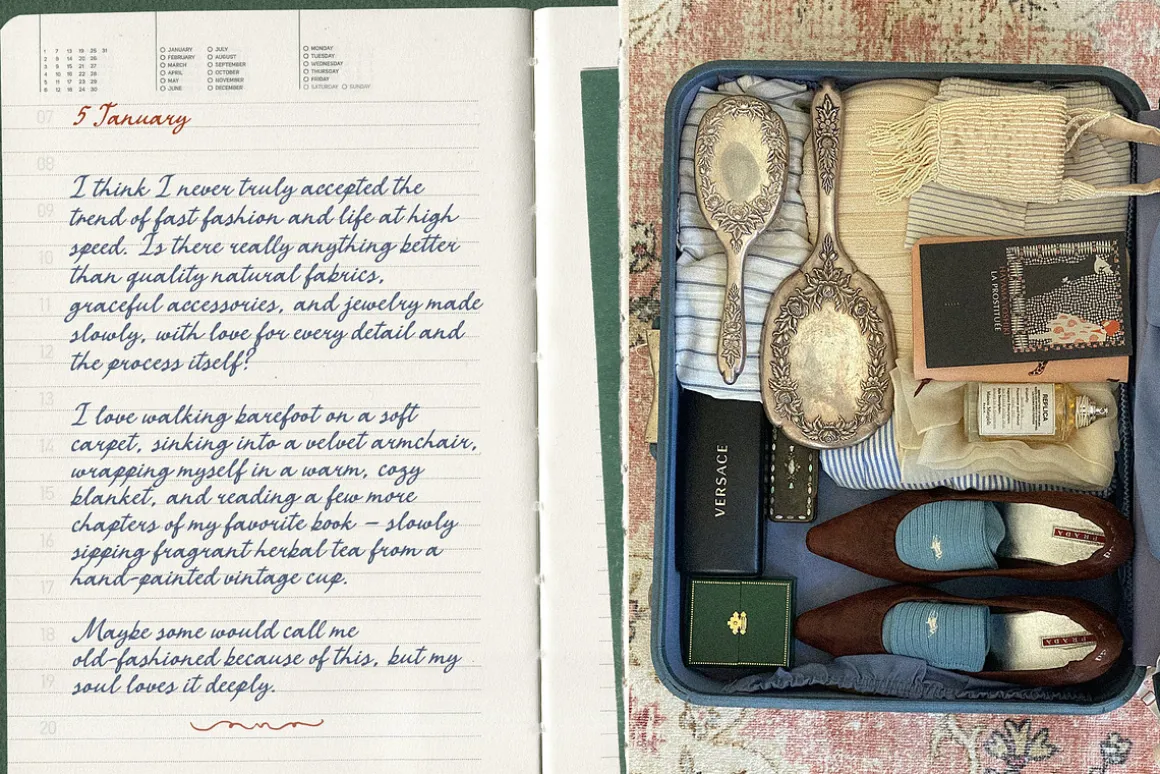 1 7 13 19 25 31
2 8 14 20 26
3 9 15 21 27
4 10 16 22 28
5 11 17 23 29
6 12 18 24 30
JANUARY
FEBRUARY
MARCH
APRIL
MAY
JUNE
JULY
AUGUST
SEPTEMBER
OCTOBER
NOVEMBER
DECEMBER
MONDAY
TUESDAY
WEDNESDAY
THURSDAY
FRIDAY
SATURDAY SUNDAY
07
5 January
08
I think I never truly accepted the
09
trend of fast fashion and life at high
speed. Is there really anything better
10
than quality natural fabrics,
11
graceful accessories, and jewelry made
slowly, with love for every detail and
12
the process itself?
13
I love walking barefoot on a soft
14
carpet, sinking into a velvet armchair,
wrapping myself in a warm, cozy
15
blanket, and reading a few more
chapters of my favorite book – slowly
16
sipping fragrant herbal tea from a
17
hand-painted vintage cup.
18
Maybe some would call me
old-fashioned because of this, but my
19
soul loves it deeply.
20
LA PROSTITUÉE
REPLICA
VERSACE
PRADA
PRADA